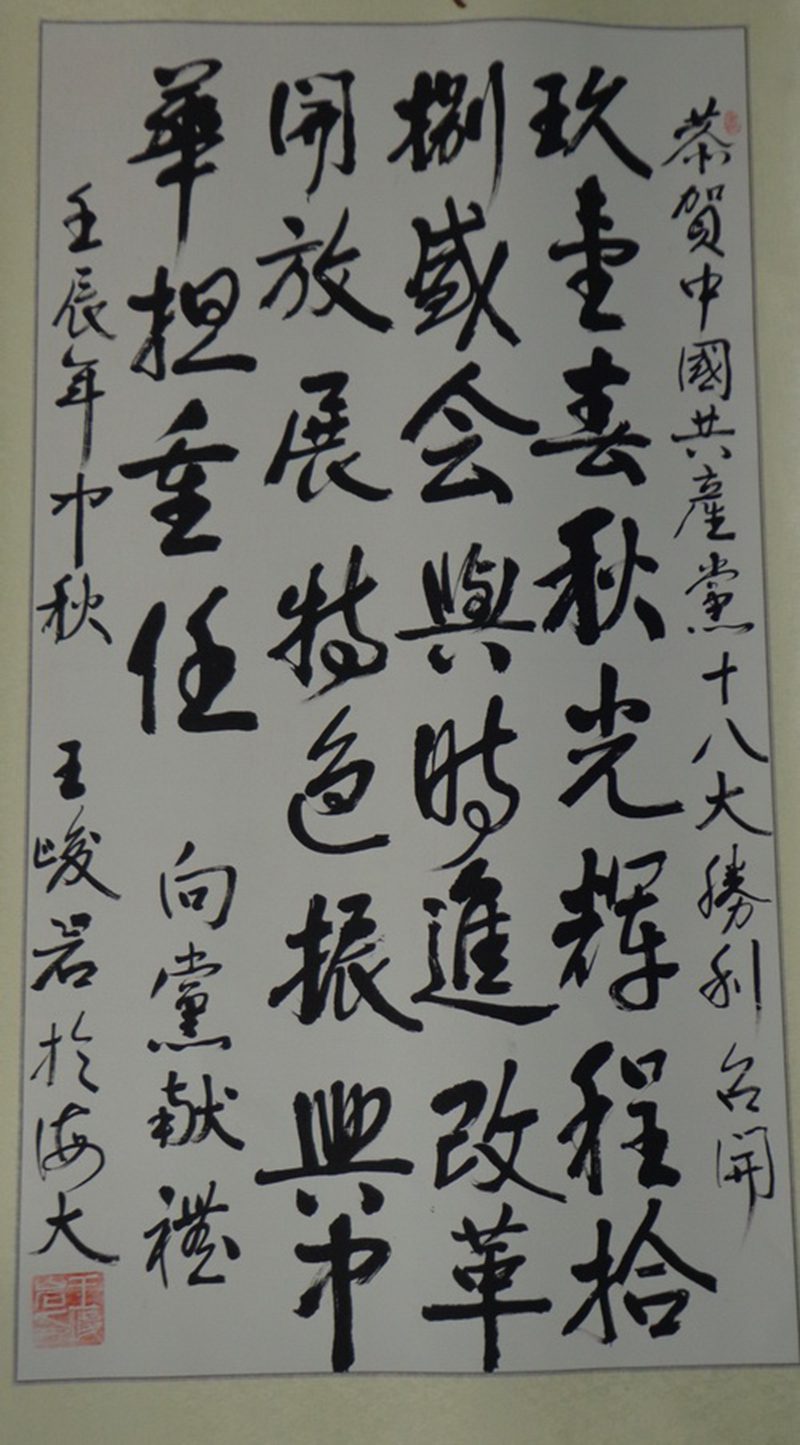 恭賀中國共產黨十八大勝利召開
玖壹春秋光輝程拾
捌盛会與時進改革
開放展特色振興中
華担重任
向黨献禮
壬辰年中秋 王峻岩於海大